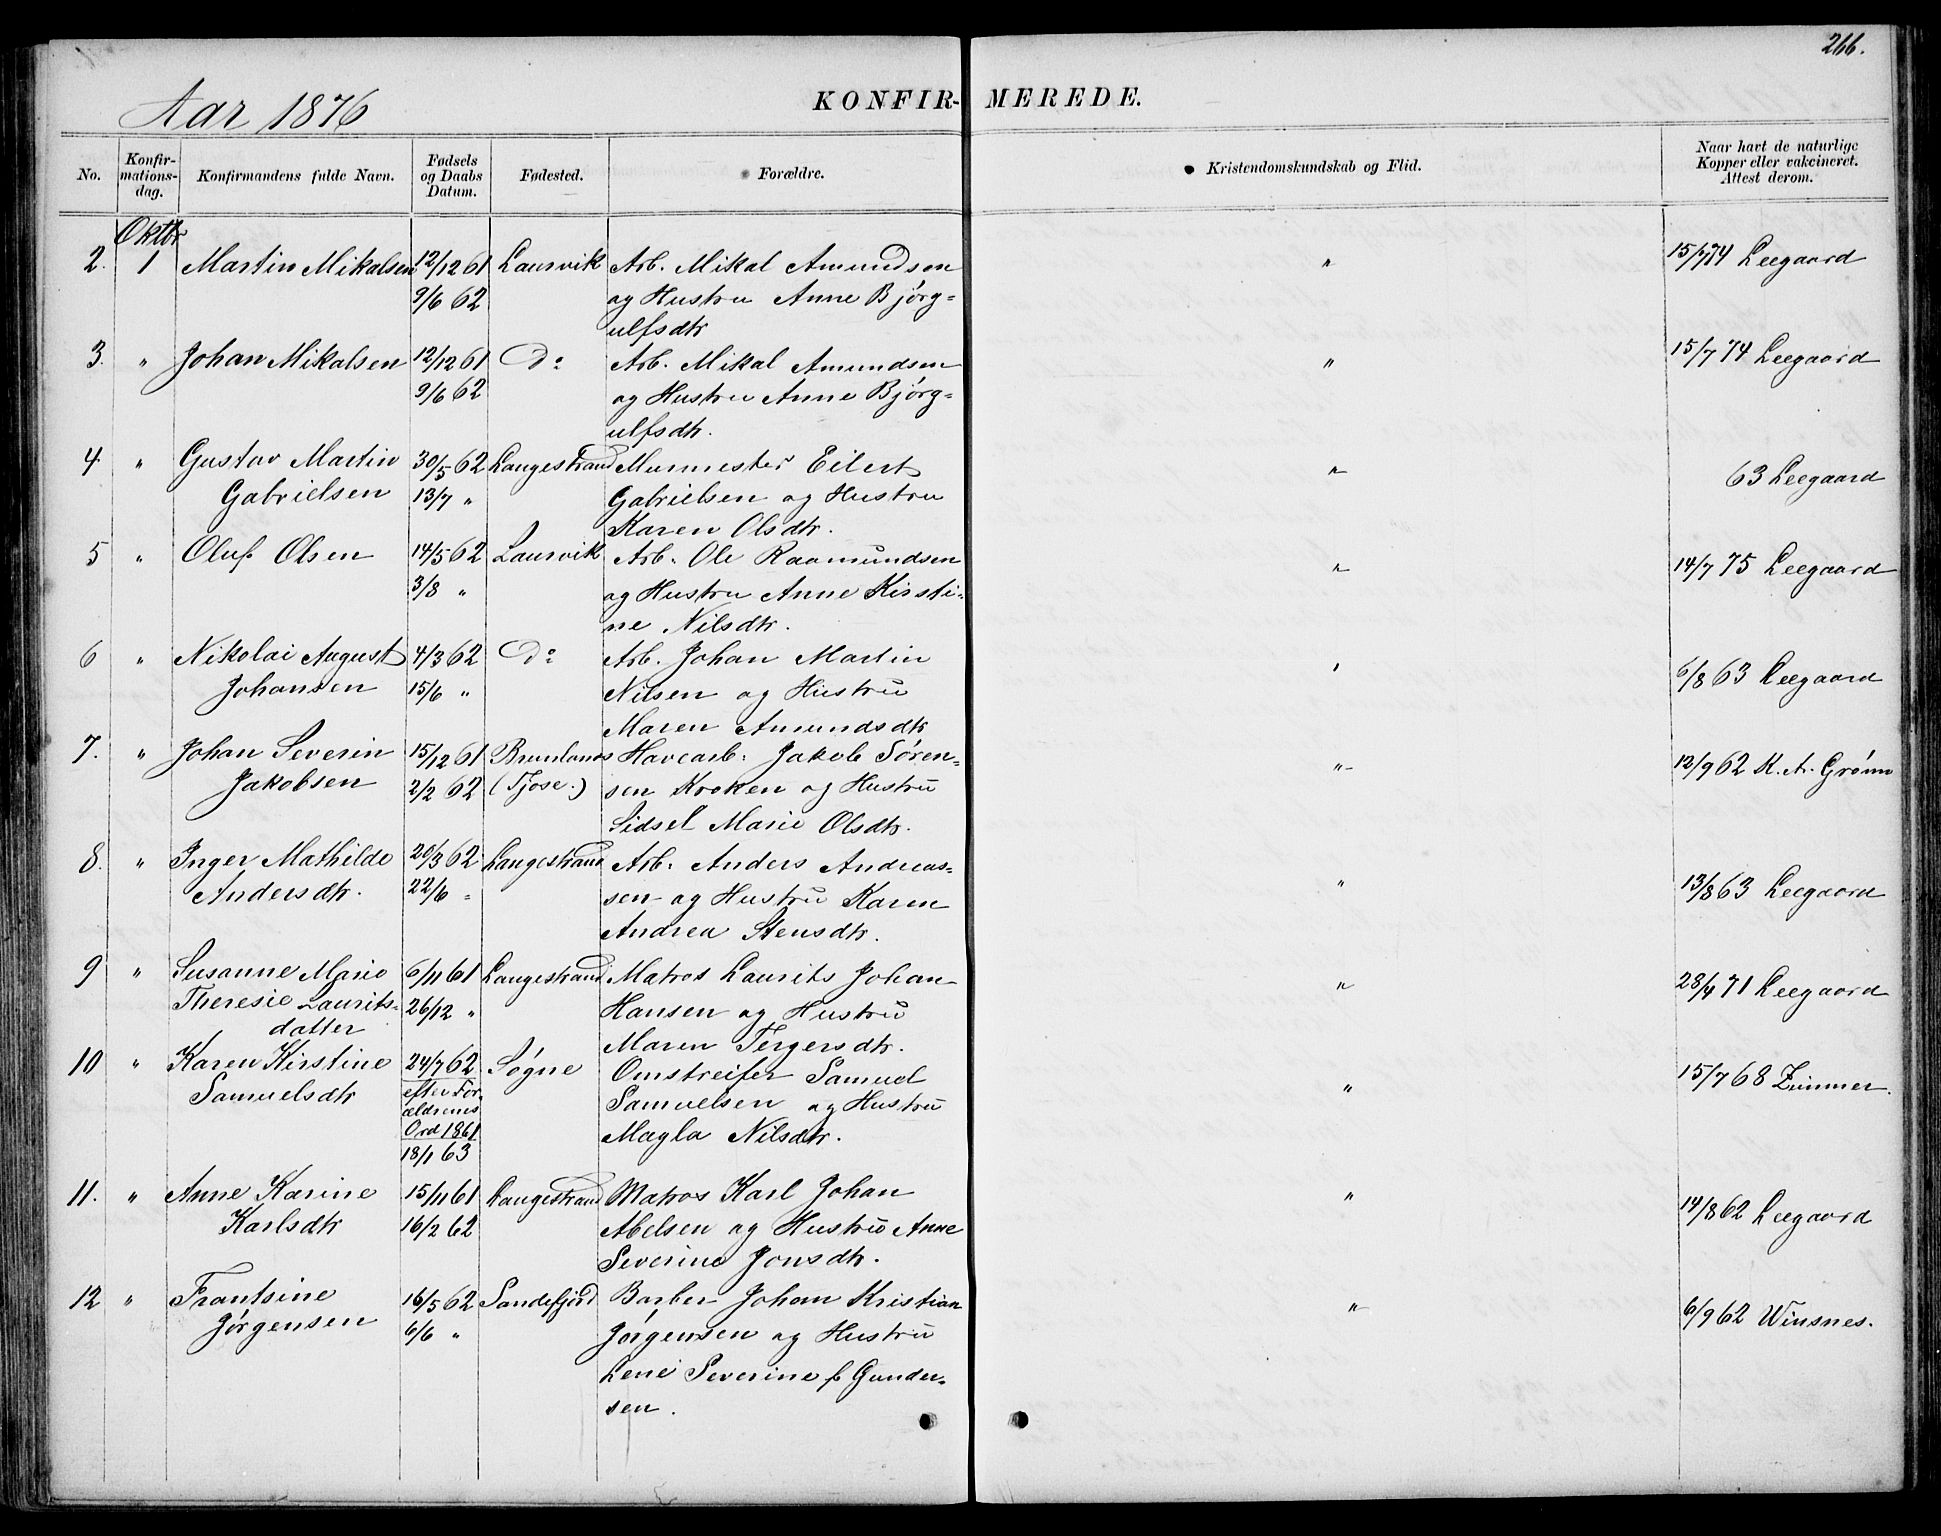 266.
Aar 1876
KONFIR- MEREDE.
No.
Konfir-
mations-
dag.
Konfirmandens fulde Navn.
Fødsels
og Daabs
Datum.
Fødested.
Forældre.
Kristendomskundskab og Flid.
Naar havt de naturlige
Kopper eller vakcineret.
Attest derom.
Oktbr
2. 1 Martin Mikalsen 12/12 61 Laurvik Arb. Mikal Amundsen " 15/7 74 Leegaard
9/6 62 og Hustru Anne Bjørg-
ulfsdtr
3. " Johan Mikalsen 12/12 61 Do Arb. Mikal Amundsen " 15/7 74 Leegaard
9/6 62 og Hustru Anne Bjørg-
ulfsdtr.
4 " Gustav Martin 30/5 62 Langestrand Murmester Eilert " 63 Leegaard
Gabrielsen 13/7 " Gabrielsen og Hustru
Karen Olsdtr.
5 " Oluf Olsen 14/5 62 Laurvik Arb. Ole Raamundsen " 14/7 75 Leegaard
3/8 " og Hustru Anne Kirsti-
ne Nilsdtr.
6 " Nikolai August 4/3 62 Do Arb. Johan Martin " 6/8 63 Leegaard
Johansen 15/6 " Nilsen og Hustru
Maren Amundsdtr
7. " Johan Severin 15/12 61 Brunlanes Havearb. Jakob Søren- " 12/9 62 K. A. Grønn
Jakobsen 2/2 62 (Tjøse.) sen Kroken og Hustru
Sidsel Marie Olsdtr.
8. " Inger Mathilde 20/3 62 Langestrand Arb. Anders Andreas- " 13/8 63 Leegaard
Andersdtr. 22/6 " sen og Hustru Karen
Andrea Stensdtr.
9 " Susanne Marie 6/11 61 Langestrand Matros Laurits Johan " 28/4 71 Leegaard
Theresie Laurits- 26/12 " Hansen og Hustru
datter Maren Tergersdtr.
10 " Karen Kirstine 24/7 62 Søgne Omstreifer Samuel " 15/7 68 Zimmer.
Samuelsdtr efter For- Samuelsen og Hustru
ældrenes
Ord 1861 Magla Nilsdtr.
18/1 63
11. " Anne Karine 15/11 61 Langestrand Matros Karl Johan " 14/8 62 Leegaard
Karlsdtr 16/2 62 Abelsen og Hustru Anne
Severine Jonsdtr.
12 " Frantsine 16/5 62 Sandefjord Barber Johan Kristian " 6/9 62 Winsnes.
Jørgensen 6/6 " Jørgensen og Hustru
Lene Severine f Gunder-
sen.